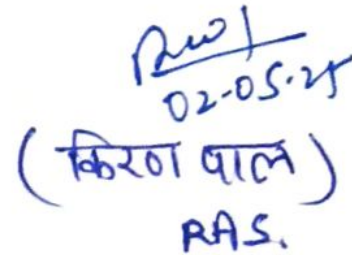 02-05-25
(किरण पाल)
RAS.